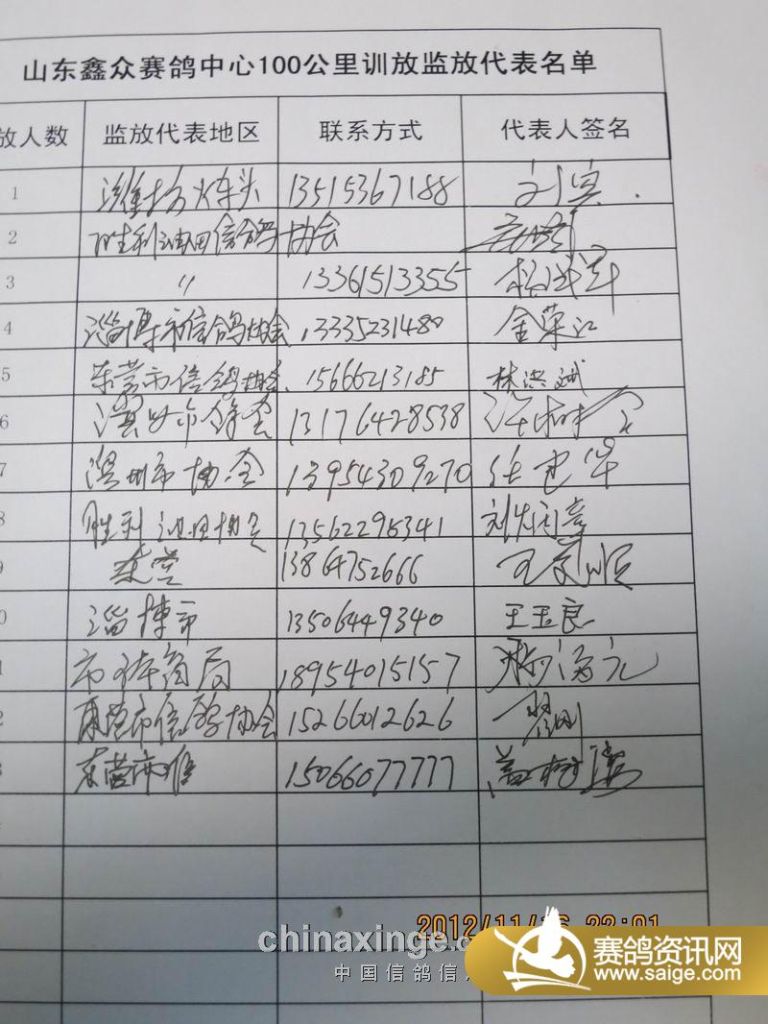 山东鑫众赛鸽中心100公里训放监放代表名单
放人数 监放代表地区 联系方式 代表人签名
1 潍坊火车头 13515367188 刘宾
2 胜利油田信鸽协会
3 〃 13361513355
4 淄博市信鸽协会 13335231480 金荣江
5 东营市信鸽协会 15666213185 林洪斌
6 13176428538
7 滨州市协会 13954309270
8 胜利油田协会 13562295341
9 东营 13864752666 王风顺
0 淄博市 13506449340 王玉良
1 市体育局 18954015157
2 东营市信鸽协会 15266012626
3 东营 15066077777
2012/11/16 22:01
chinaxinge.c
中国信鸽信
赛鸽资讯网
www.saige.com